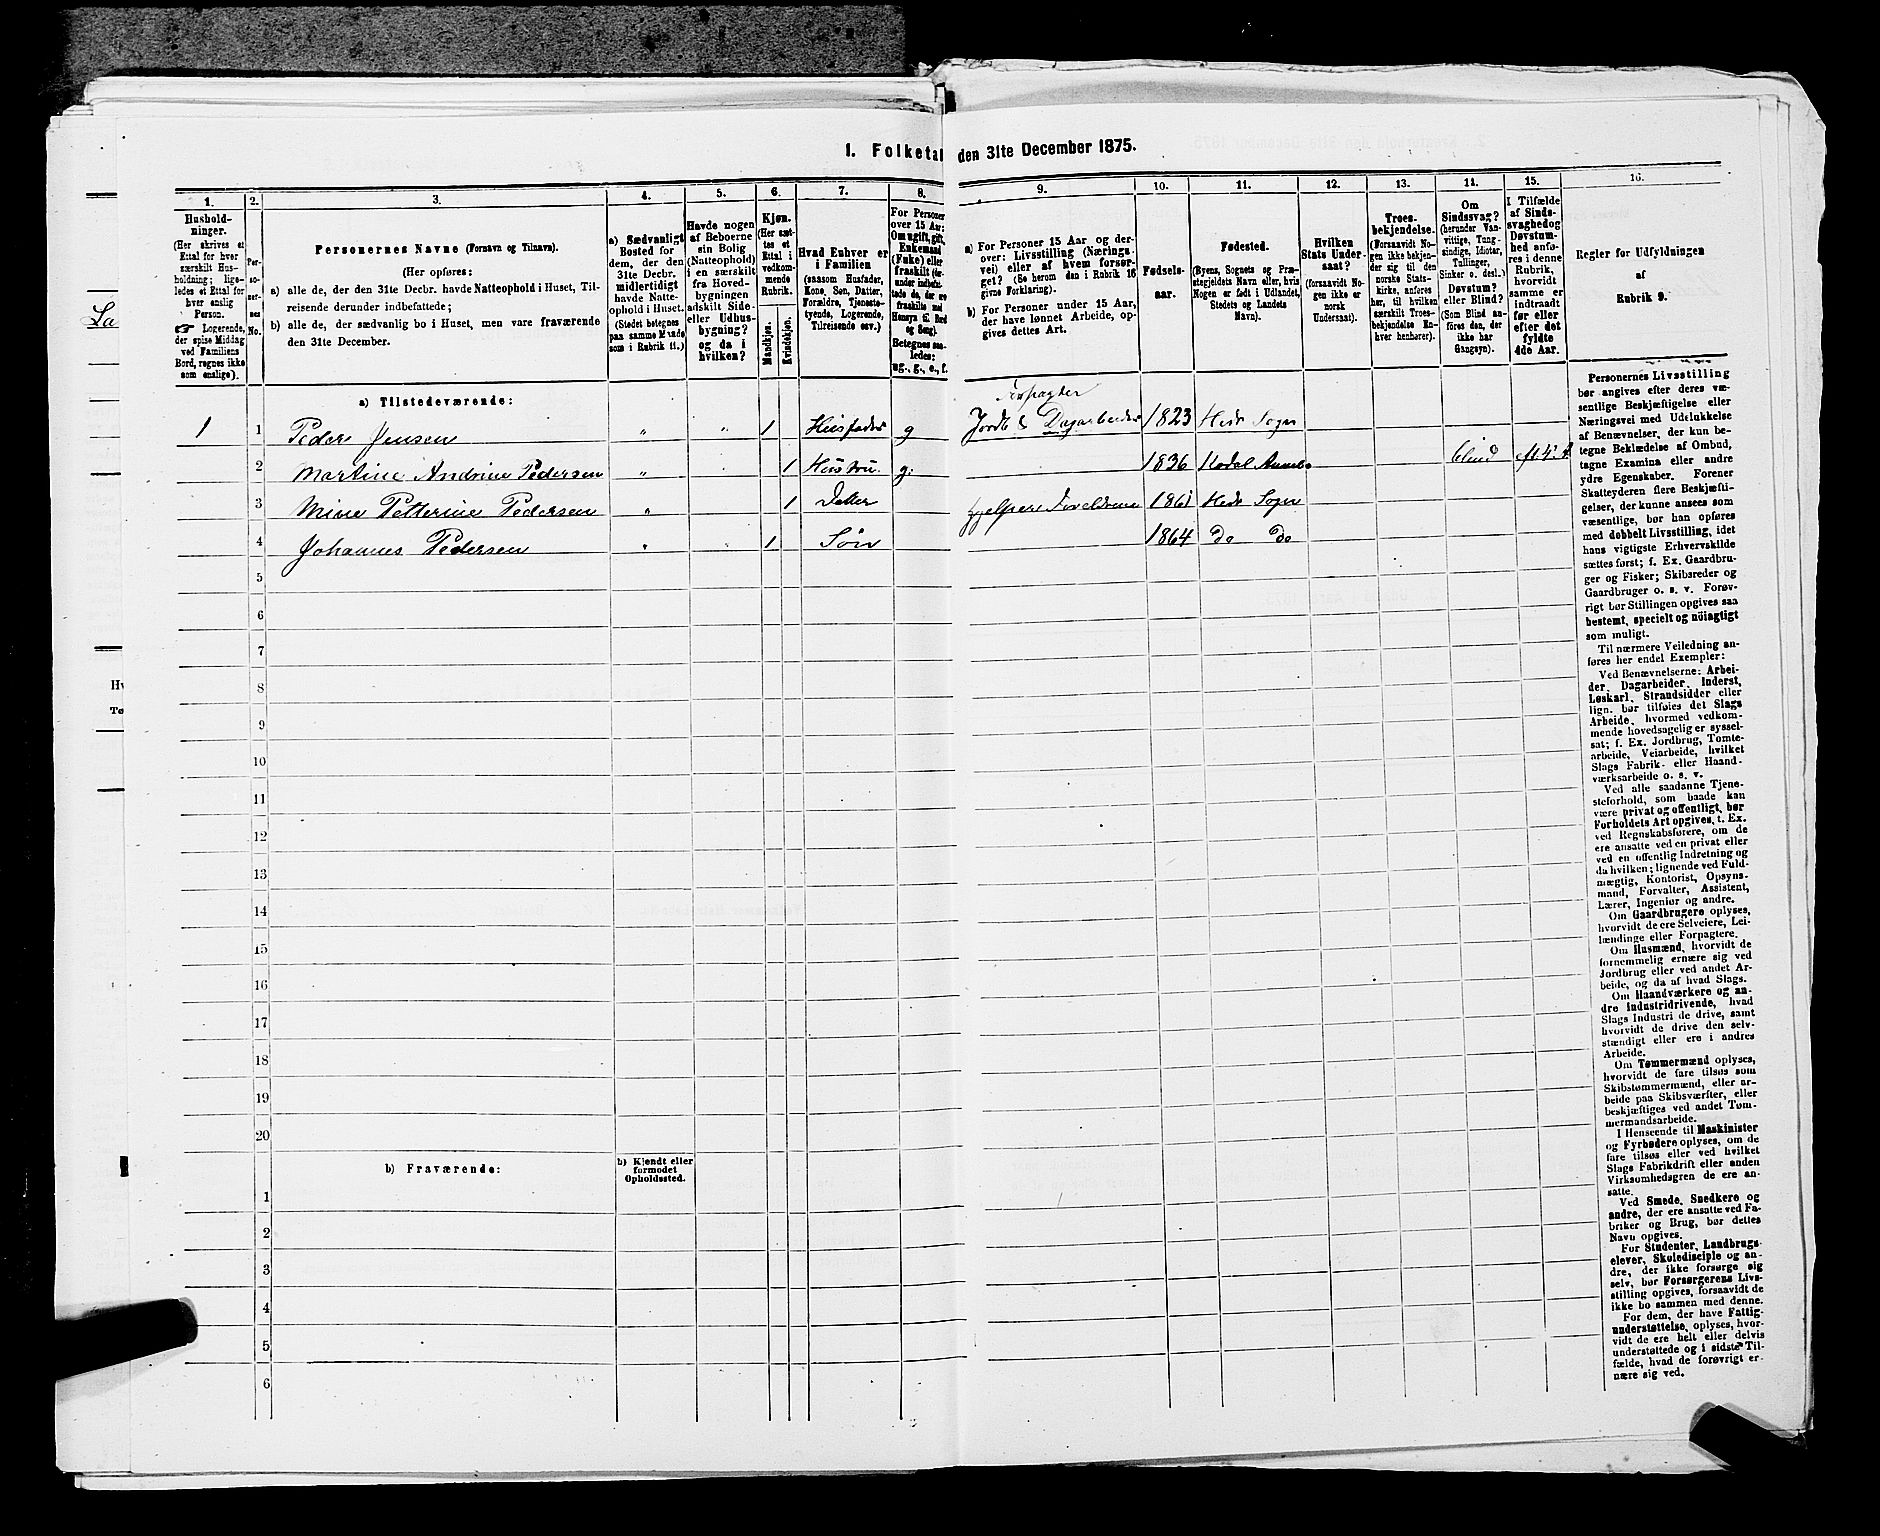 1. Folketal den 31te December 1875.
La
Hv
Tø
1.
Hushold-
ninger.
(Her skrives et
Ettal for hver
særskilt Hus-
holdning; lige-
ledes et Ettal for
hver enslig
Person.
Logerende,
der spise Middag
ved Familiens
Bord, regnes ikke
som enslige).
2.
Per-
so-
ner-
nes
No.
3.
Personernes Navne (Fornavn og Tilnavn).
(Her opføres:
a) alle de, der den 31te Decbr. havde Natteophold i Huset, Til-
reisende derunder indbefattede;
b) alle de, der sædvanlig bo i Huset, men vare fraværende
den 31te December.
4.
a) Sædvanligt
Bosted for
dem, der den
31te Decbr.
midlertidigt
havde Natte-
ophold i Huset.
(Stedet betegnes
paa samme Maade
som i Rubrik 11.)
5.
Havde nogen
af Beboerne
sin Bolig
(Natteophold)
i en særskilt
fra Hoved-
bygningen
adskilt Side-
eller Udhus-
bygning?
og da i
hvilken?
6.
Kjøn.
(Her sæt-
tes et
Ettal i
vedkom-
mende
Rubrik.
Mandkjøn.
Kvindekjøn.
7.
Hvad Enhver er
i Familien
(saasom Husfader,
Kone, Søn, Datter,
Forældre, Tjeneste-
tyende, Logerende,
Tilreisende osv.)
8.
For Personer
over 15 Aar:
Om ugift, gift,
Enkemand
(Enke) eller
fraskilt
Hensyn til Bord
og Seng).
Betegnes saa-
ledes:
ug., g., e., f.
9.
a) For Personer 15 Aar og der-
over: Livsstilling (Nærings-
vei) eller af hvem forsør-
get? (Se herom den i Rubrik 16
givne Forklaring).
b) For Personer under 15 Aar,
der have lønnet Arbeide, op-
gives dettes Art.
10.
Fødsels-
aar.
11.
Fødested.
(Byens, Sognets og Præ-
stegjeldets Navn eller, hvis
Nogen er født i Udlandet,
Stedets og Landets
Navn).
12.
Hvilken
Stats Under-
saat?
(forsaavidt No-
gen ikke er
norsk
Undersaat).
13.
Troes-
bekjendelse.
(Forsaavidt No-
gen ikke bekjen-
der sig til den
norske Stats-
kirke, anføres
her, til hvilken
særskilt Troes-
bekjendelse En-
hver henhører).
14.
Om
Sindssvag?
(herunder Van-
vittige, Tung-
sindige, Idioter,
Tullinger,
Sinker o. desl.)
Døvstum?
eller Blind?
(Som Blind an-
føres den, der
ikke har
Gangsyn).
15.
I Tilfælde
af Sinds-
svaghed og
Døvstum-
hed anfø-
res i denne
Rubrik,
hvorvidt
samme er
indtraadt
før eller
efter det
fyldte
4de Aar.
16.
Regler for Udfyldningen
af
Rubrik 9.
a) Tilstedeværende:
Forpagter
1 1 Peder Jensen „ „ 1 Husfader g Jordb & Dagarbeider 1823 Hede Sogn
2 Martine Andrine Pedersen „ 1 Hustru g: 1836 blind
3 Mine Petterine Pedersen „ 1 Datter Hjelper Foreldrene 1861 Hede Sogn
4 Johannes Pedersen „ „ 1 Søn 1864 Do Do
5
6
7
8
9
10
11
12
13
14
15
16
17
18
19
20
b) Fraværende:
b) Kjendt eller
formodet
Opholdssted.
1
2
3
4
5
6
Personernes Livsstilling
bør angives efter deres væ-
sentlige Beskjæftigelse eller
Næringsvei med Udelukkelse
af Benævnelser, der kun be-
tegne Beklædelse af Ombud,
tagne Examina eller andre
ydre Egenskaber. Forener
Skatteyderen flere Beskjæfti-
gelser, der kunne ansees som
væsentlige, bør han opføres
med dobbelt Livsstilling, idet
hans vigtigste Erhvervskilde
sættes først; f. Ex. Gaardbru-
ger og Fisker; Skibsreder og
Gaardbruger o. s. v. Forøv-
rigt bør Stillingen opgives saa
bestemt, specielt og nöiagtigt
som muligt.
Til nærmere Veiledning an-
føres her endel Exempler:
Ved Benævnelserne: Arbei-
der, Dagarbeider, Inderst,
Løskarl, Strandsidder eller
lign. bør tilføies det Slags
Arbeide, hvormed vedkom-
mende hovedsagelig er syssel-
sat; f. Ex. Jordbrug, Tomte-
arbeide, Veiarbeide, hvilket
Slags Fabrik- eller Haand-
værksarbeide o. s. v.
Ved alle saadanne Tjene-
steforhold, som baade kan
være privat og offentligt, bør
Forholdets Art opgives, t. Ex.
ved Regnskabsførere, om de
ere ansatte ved en privat eller
ved en offentlig Indretning og
da hvilken; lignende ved Fuld-
mægtig, Kontorist, Opsyns-
mand, Forvalter, Assistent,
Lærer, Ingeniør og andre.
Om Gaardbrugere oplyses,
hvorvidt de ere Selveiere, Lei-
lændinge eller Forpagtere.
Om Husmænd, hvorvidt de
fornemmelig ernære sig ved
Jordbrug eller ved andet Ar-
beide, og da af hvad Slags.
Om Haandværkere og an-
dre Industridrivende, hvad
Slags Industri de drive, samt
hvorvidt de drive den selv-
stændigt eller ere i andres
Arbeide.
Om Tømmermænd oplyses,
hvorvidt de fare tilsøs som
Skibstømmermænd, eller ar-
beide paa Skibsværfter, eller
beskjæftiges ved andet Tøm-
mermandsarbeide.
I Henseende til Maskinister
og Fyrbødere oplyses, om de
fare tilsøs eller ved hvilket
Slags Fabrikdrift eller anden
Virksomhedsgren de ere an-
satte.
Ved Smede, Snedkere og
andre, der ere ansatte ved Fa-
briker og Brug, bør dettes
Navn opgives.
For Studenter, Landbrugs-
elever, Skoledisciple og an-
dre, der ikke forsørge sig
selv, bør Forsørgerens Livs-
stilling opgives, forsaavidt de
ikke bo sammen med denne.
For dem, der have Fattig-
understøttelse, oplyses, hvor-
vidt de ere helt eller delvis
understøttede og i sidste Til-
fælde, hvad de forøvrigt er-
nære sig ved.